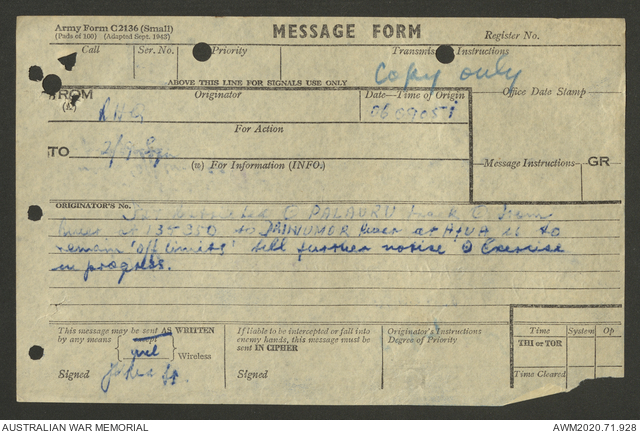 Army Form C2136 (Small)
(Pads of 100) (Adapted Sept. 1943)
MESSAGE FORM
Register No.
Call
Ser. No.
Priority
Transmission Instructions
Copy only
ABOVE THIS LINE FOR SIGNALS USE ONLY
FROM
(E)
Originator
Date—Time of Origin
Office Date Stamp
For Action
TO
2/9
(W) For Information (INFO.)
Message Instructions
GR
ORIGINATOR'S No.
PALAURU track
River at 135350 to River at AFUA is to
remain 'off limits' till further notice Exercise
in progress.
This message may be sent AS WRITTEN
by any means
except
Wireless
Signed
If liable to be intercepted or fall into
enemy hands, this message must be
sent IN CIPHER
Signed
Originator's Instructions
Degree of Priority
Time
System
Op
THI or TOR
Time Cleared
AUSTRALIAN WAR MEMORIAL
AWM2020.71.928